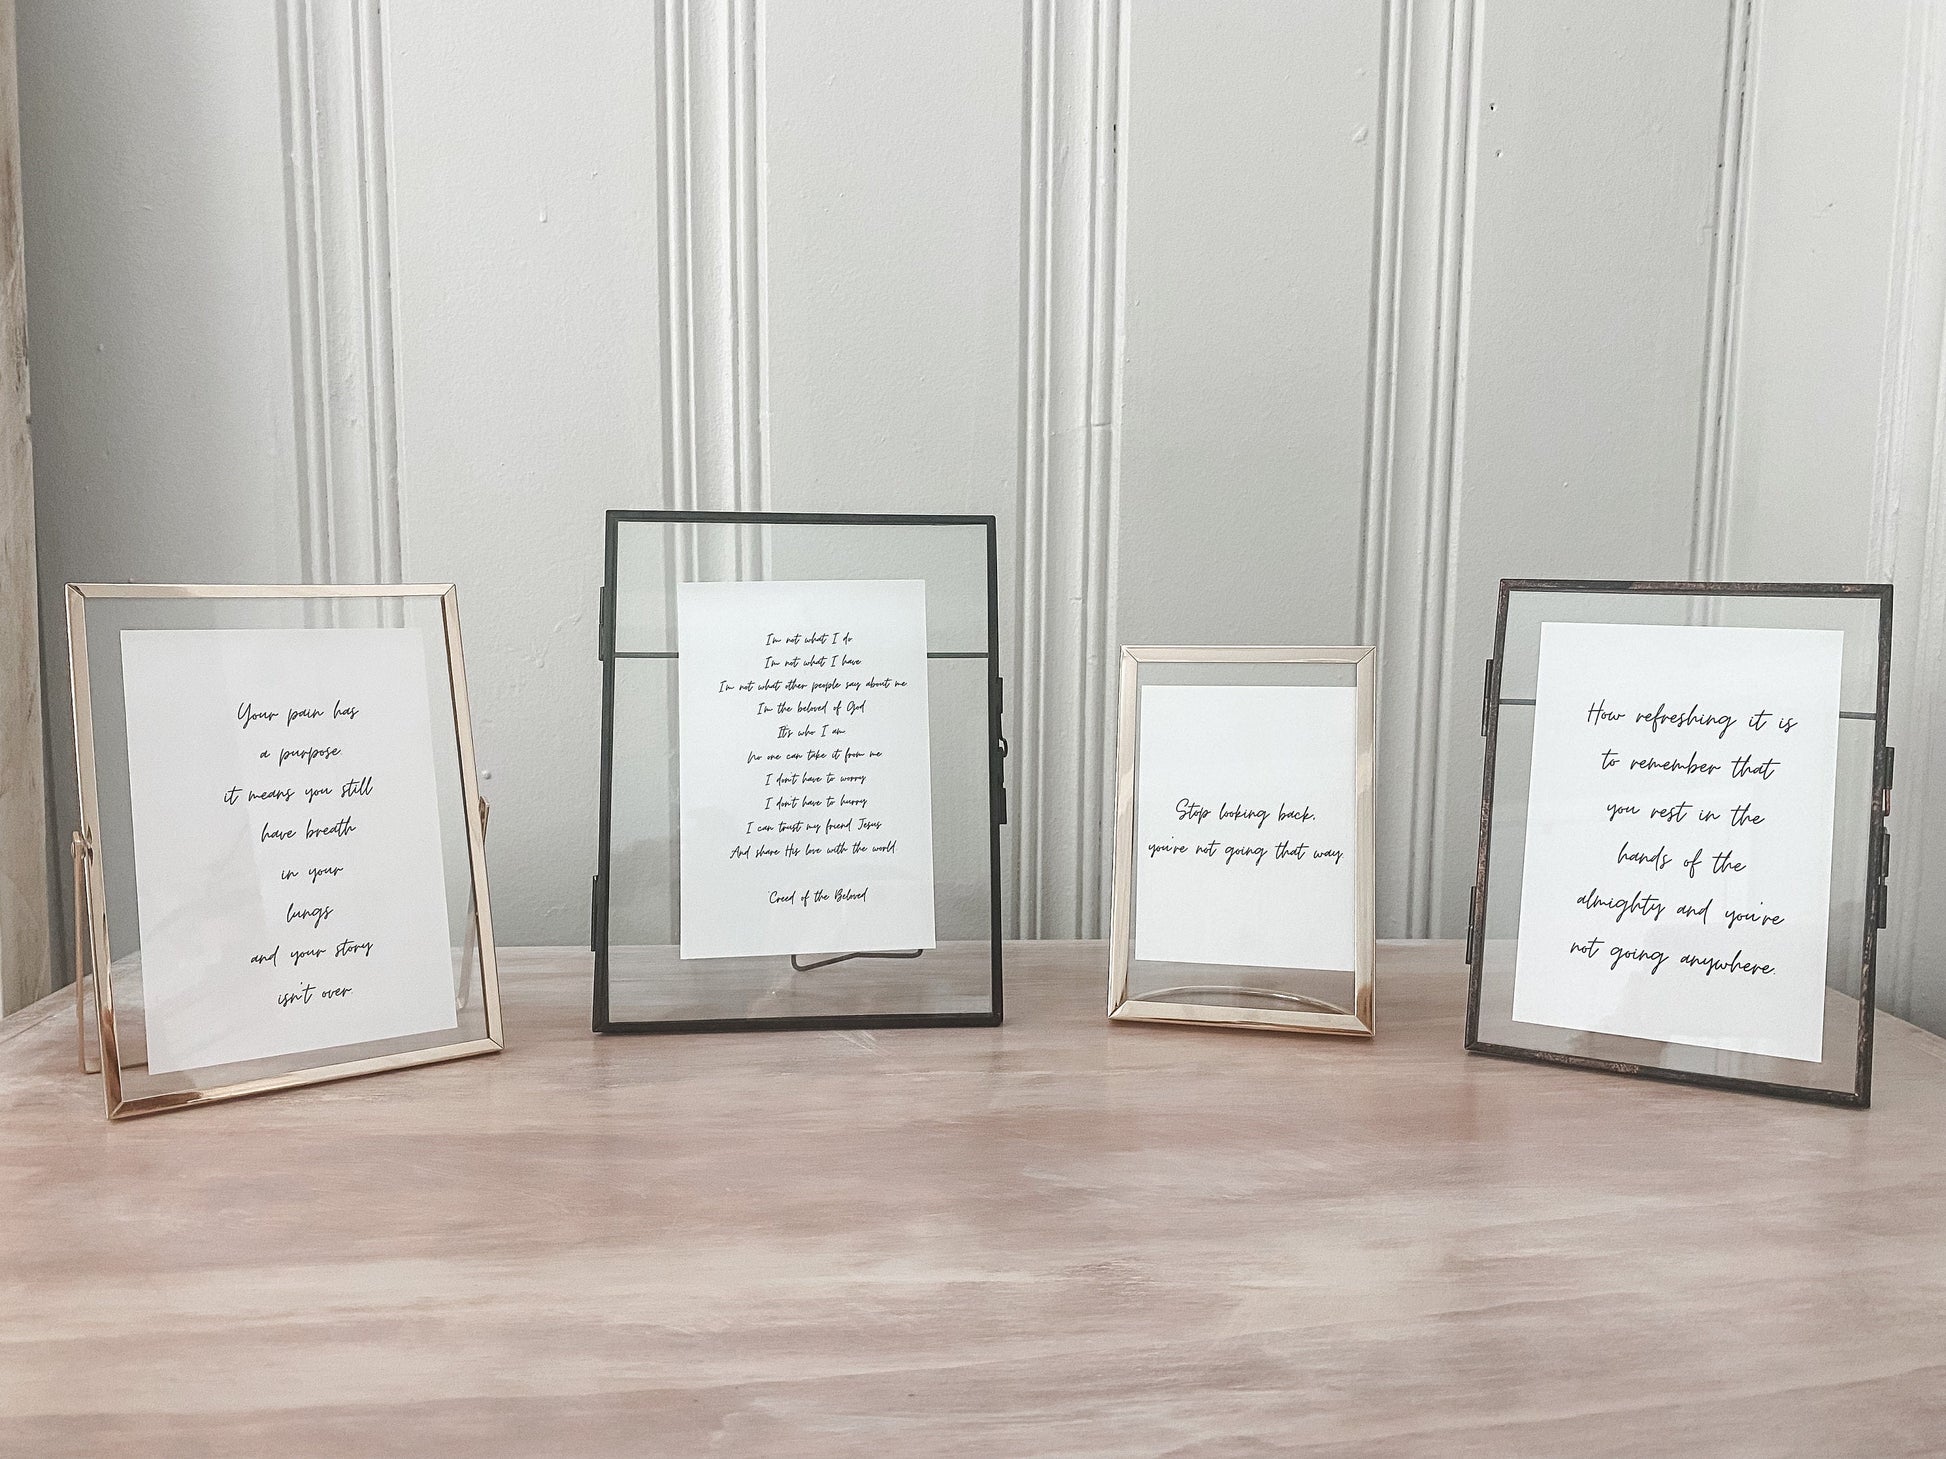 Your pain has
a purpose.
it means you still
have breath
in your
lungs
and your story
isn't over.
I'm not what I do
I'm not what I have
I'm not what other people say about me
I'm the beloved of God
It's who I am
No one can take it from me
I don't have to worry
I don't have to hurry
I can trust my friend Jesus
And share His love with the world.
"Creed of the Beloved
Stop looking back,
you're not going that way.
How refreshing it is
to remember that
you rest in the
hands of the
almighty and you're
not going anywhere.